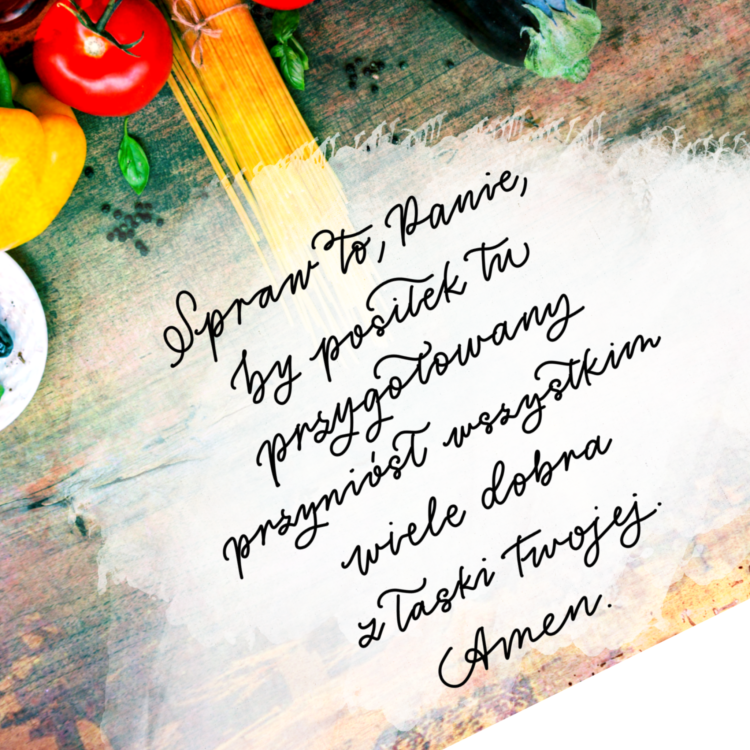 Spraw to, Panie,
by posiłek tu
przygotowany
przyniósł wszystkim
wiele dobra
z łaski Twojej.
Amen.